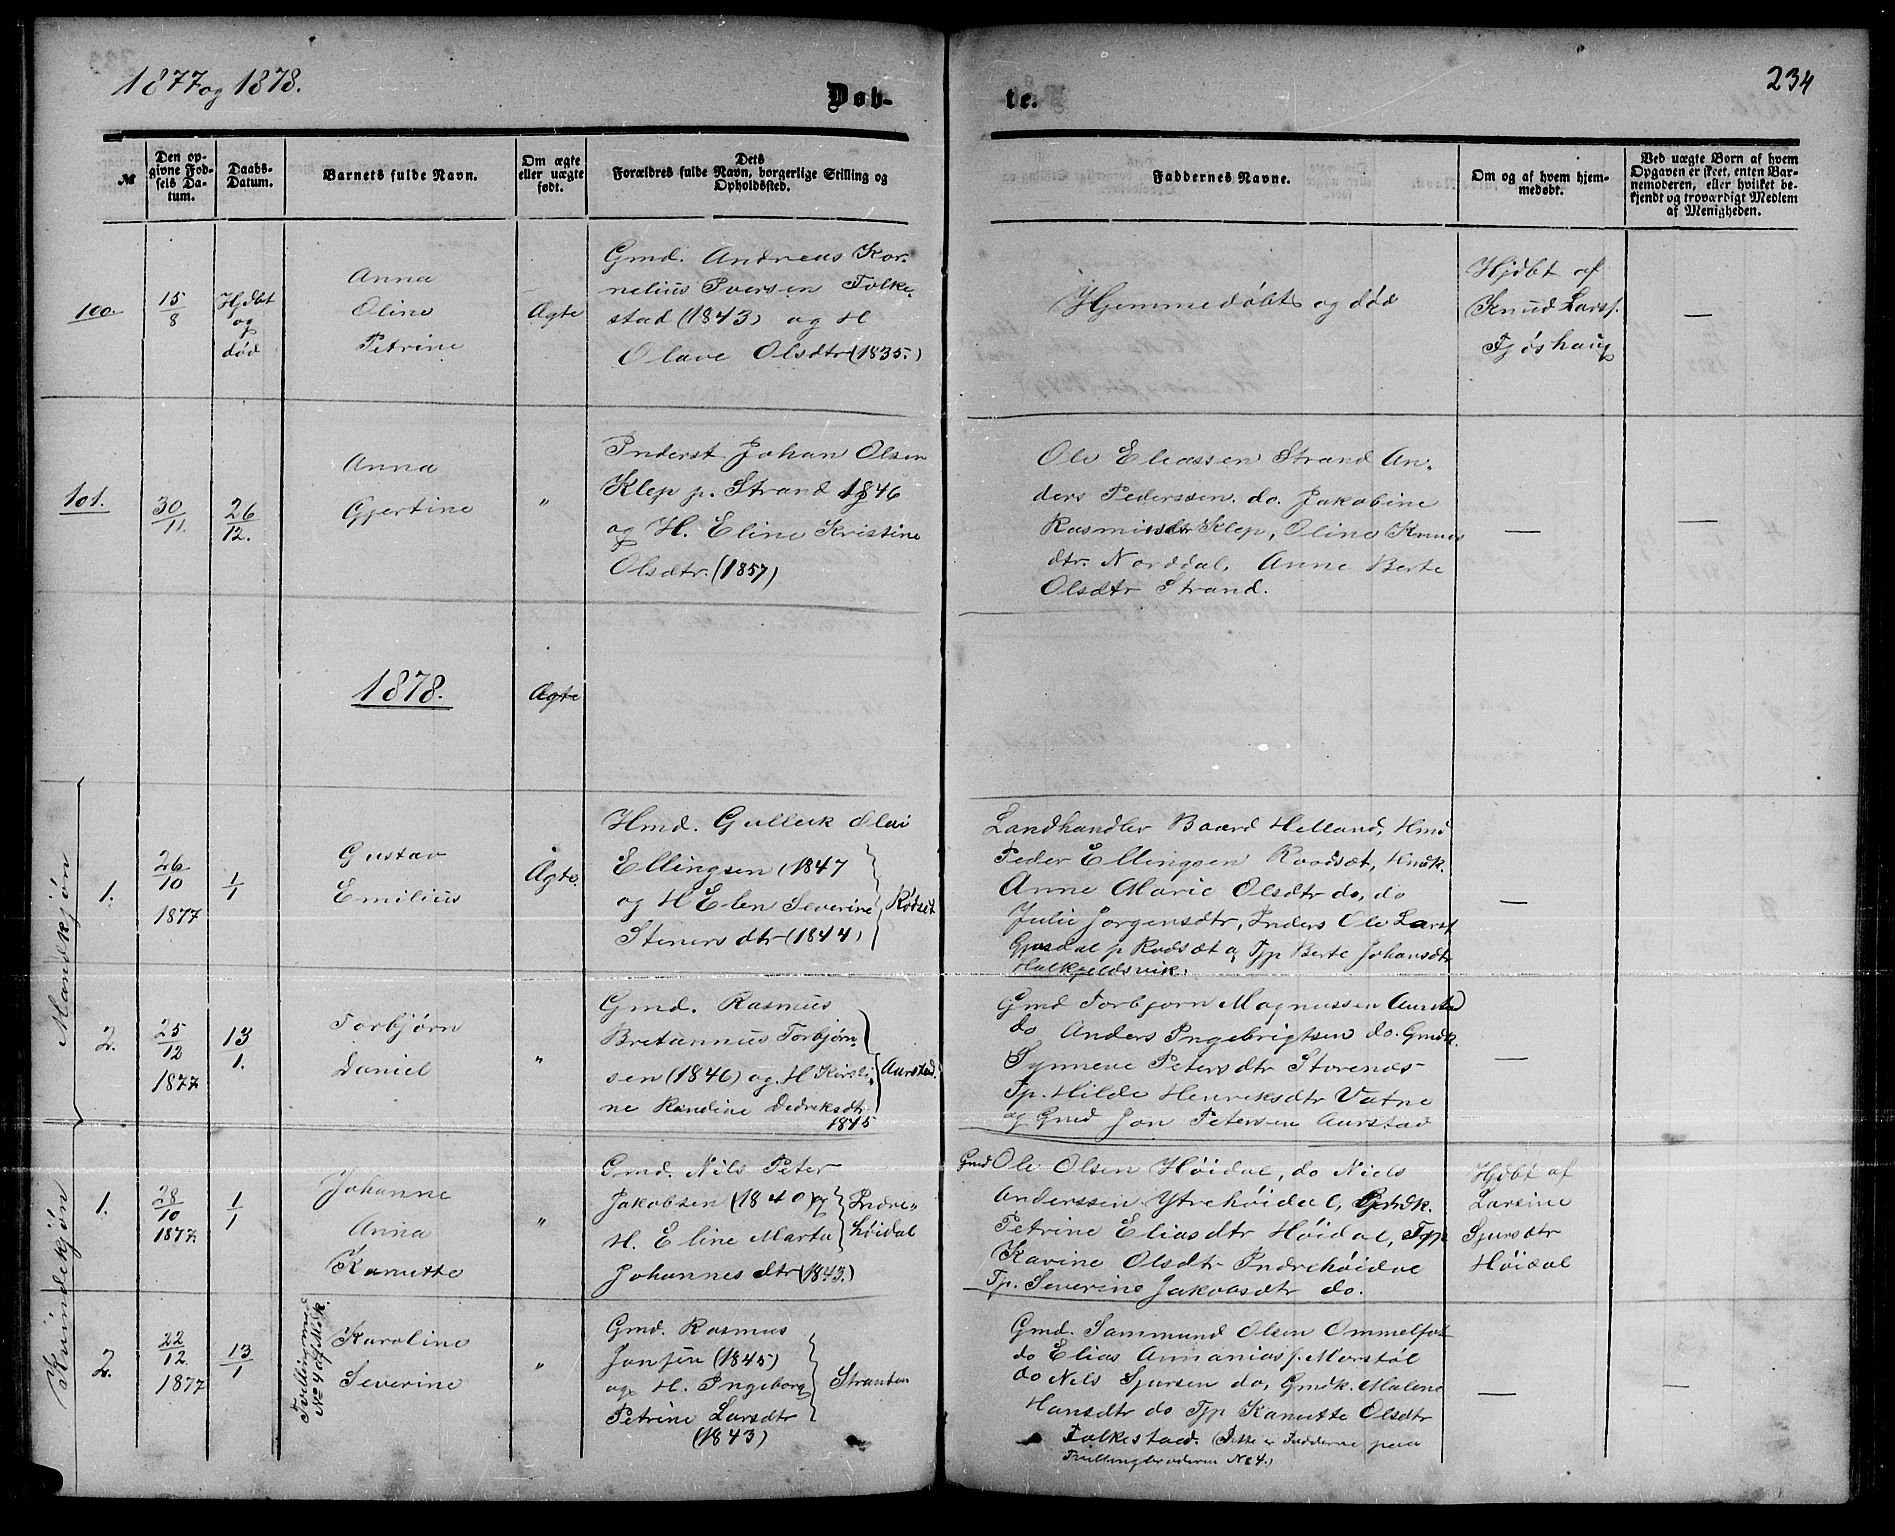 1877 og 1878.
Døb-
te.
234
№
Den op-
givne Fød-
sels Da-
tum.
Daabs-
Datum.
Barnets fulde Navn.
Om ægte
eller uægte
født.
Dets
Forældres fulde Navn, borgerlige Stilling og
Opholdssted.
Faddernes Navne.
Om og af hvem hjem-
medøbt.
Ved uægte Børn af hvem
Opgaven er skeet, enten Bar-
nemoderen, eller hvilket be-
kjendt og troværdigt Medlem
af Menigheden.
100.
15/8
Hjdbt
og
død
Anna
Oline
Petrine
Ægte
Gmd. Andreas Kor-
nelius Iversen Folke-
stad (1843) og H
Olave Olsdtr (1835.)
Hjemmedøbt og død
Hjdbt af
Knud Larss.
Tjøshaug
—
101.
30/11
26/12.
Anna
Gjertine
"
Inderst Johan Olsen
Klep p. Strand 1846
og H. Eline Kristine
Olsdtr. (1857)
Ole Eliassen Strand An-
ders Pederssen do. Jakobine
Rasmusdtr Klep, Oline Knuds
dtr. Norddal, Anne Berte
Olsdtr Strand.
—
—
1878.
Ægte
Mandkjøn
1.
26/10
1877
1/1
Gustav
Emilius
Ægte.
Hmd. Gulleik Olai
Ellingsen (1847
og H Elen Severine
Steners dtr (1844)
Rødset
Landhandler Baard Helland, Hmd
Peder Ellingsen Rødsæt, Hmdk.
Anne Marie Olsdtr do, do
Julie Jørgensdtr, Inders Ole Larss
Gjøsdal p Rødsæt og Tjp Berte Johansdtr
Halkjeldsvik.
—
2.
25/12
1877
13/1.
Torbjørn
Daniel
"
Gmd. Rasmus
Bretannus Torbjørn-
sen (1846) og H Kirsti-
ne Randine Dedriksdtr
1845
Aurstad.
Gmd Torbjørn Magnussen Aurstad
do Anders Ingebrigtsen do. Gmdk.
Synneve Petersdtr Storenes
Tp. Hilde Henriksdtr Vatne
og Gmd Jon Petersen Aurstad
—
Kvindekjøn
1.
28/10
1877.
1/1
Johanne
Anna
Kanutte
"
Gmd. Nils Peter
Jakobsen (1840) og
H. Eline Marta
Johannesdtr (1843.)
Indre-
høidal
Gmd Ole Olsen Høidal, do Niels
Anderssen Ytrehøidal, Gmdk.
Petrine Eliasdtr Høidal, Tjp
Karine Olsdtr Indrehøidal
Tp. Severine Jakobsdtr do.
Hjdbt af
Larsine
Sjursdtr
Høidal
2.
22/12
1877
13/1
Tvilling med
№ 4 af Mdk.
Karoline
Severine
"
Gmd. Rasmus
Jonsen (1845)
og H. Ingeborg
Petrine Larsdtr
(1843)
Stranden
Gmd. Sammund Olsen Ommelfos
do Elias Annanias s. Morstøl
do Nils Sjursen do, Gmdk. Malene
Hansdtr do Tjp Kanutte Olsdtr
Folkestad. (Dette er Fadderne paa
Tvillingbroderen № 4.)
—
—